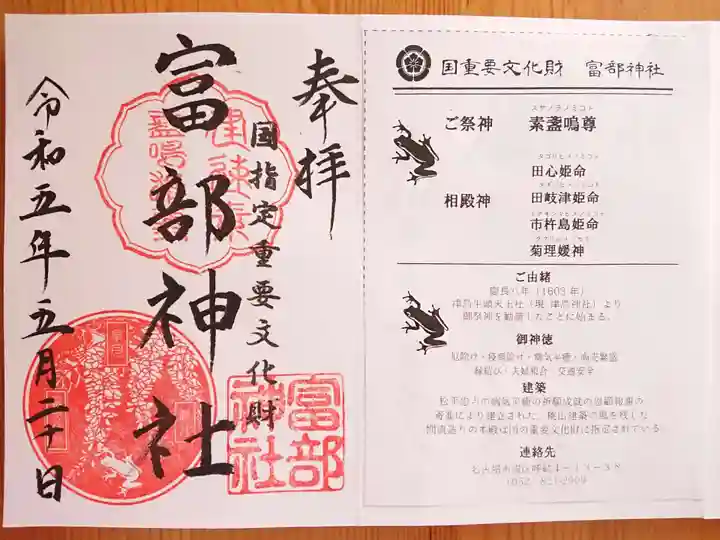 奉拝
国指定重要文化財
富部神社
令和五年五月二十日
富部
神社
国重要文化財 富部神社
スサノヲノミコト
ご祭神 素盞嗚尊
タゴリヒメノミコト
田心姫命
相殿神 田岐津姫命
市杵島姫命
菊理媛神
ご由緒
慶長八年（1603年）
津島牛頭天王社（現 津島神社）より
御祭神を勧請したことに始まる。
御神徳
厄除け・疫病除け・病気平癒・商売繁盛
縁結び・夫婦和合 交通安全
建築
松平忠吉の病気平癒の祈願成就の恩顧報謝の
寄進により建立された。桃山建築の風を残した
間流造りの本殿は国の重要文化財に指定されている。
連絡先
名古屋市南区呼続4－13－38
(052-821-2909